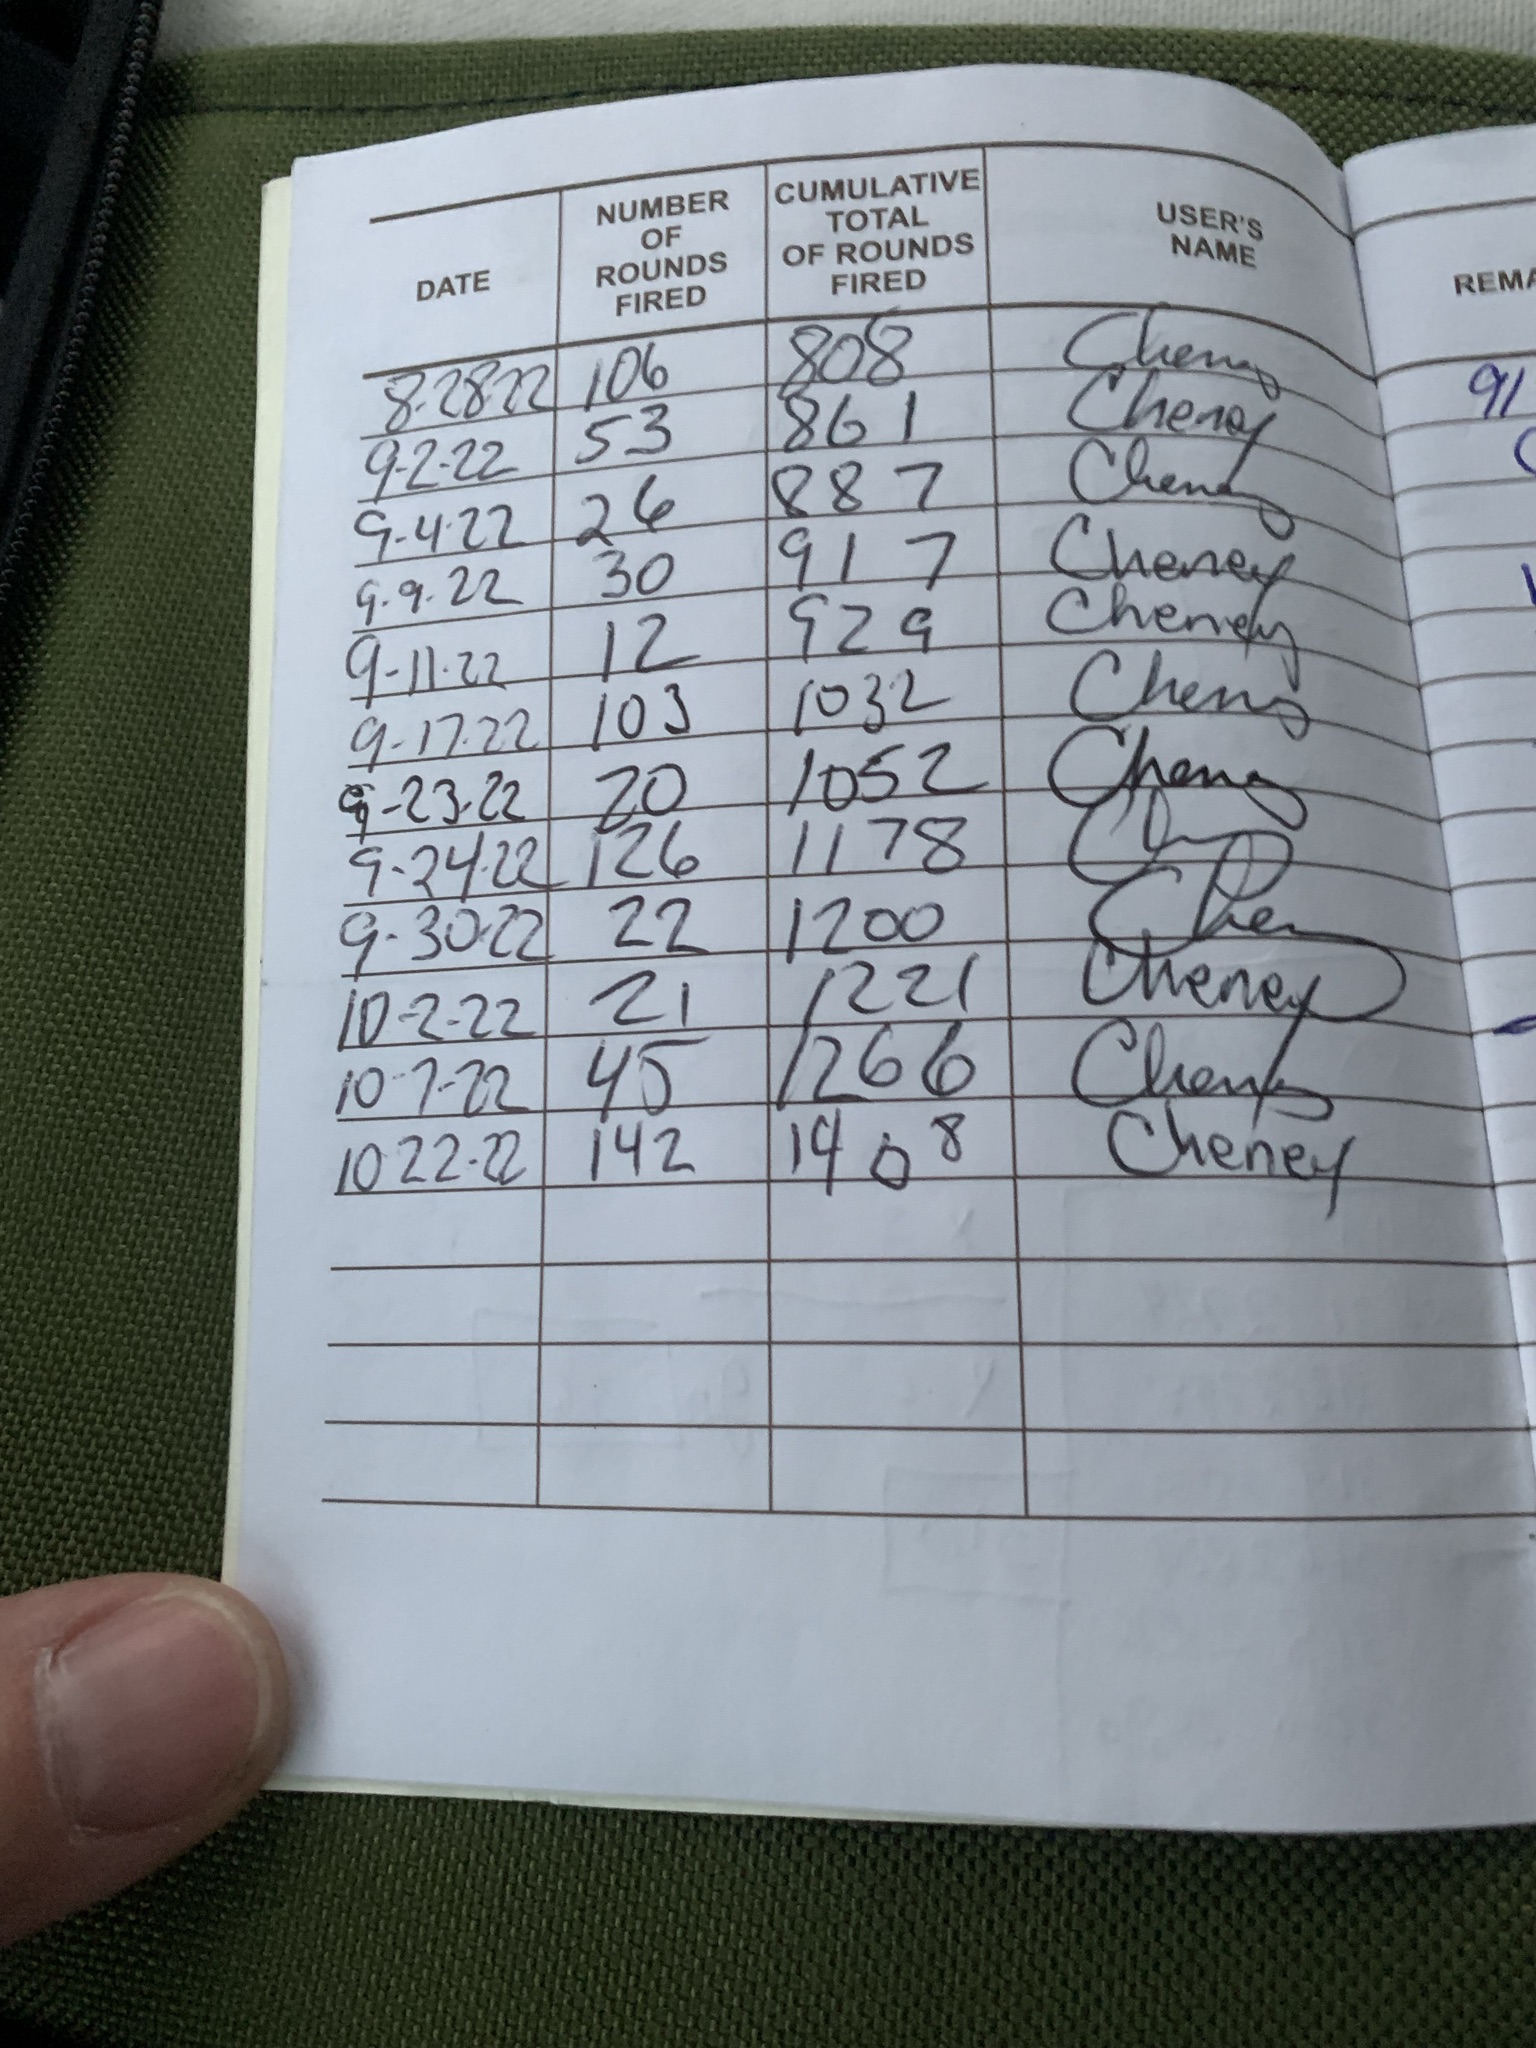 DATE NUMBER OF ROUNDS FIRED CUMULATIVE TOTAL OF ROUNDS FIRED USER'S NAME REMA
8-28-22 106 808 Cheney 91
9-2-22 53 861 Cheney
9-4-22 26 887 Cheney
9-9-22 30 917 Cheney
9-11-22 12 929 Cheney
9-17-22 103 1032 Cheney
9-23-22 20 1052 Cheney
9-24-22 126 1178
9-30-22 22 1200
10-2-22 21 1221 Cheney
10-7-22 45 1266 Cheney
10 22-22 142 1408 Cheney